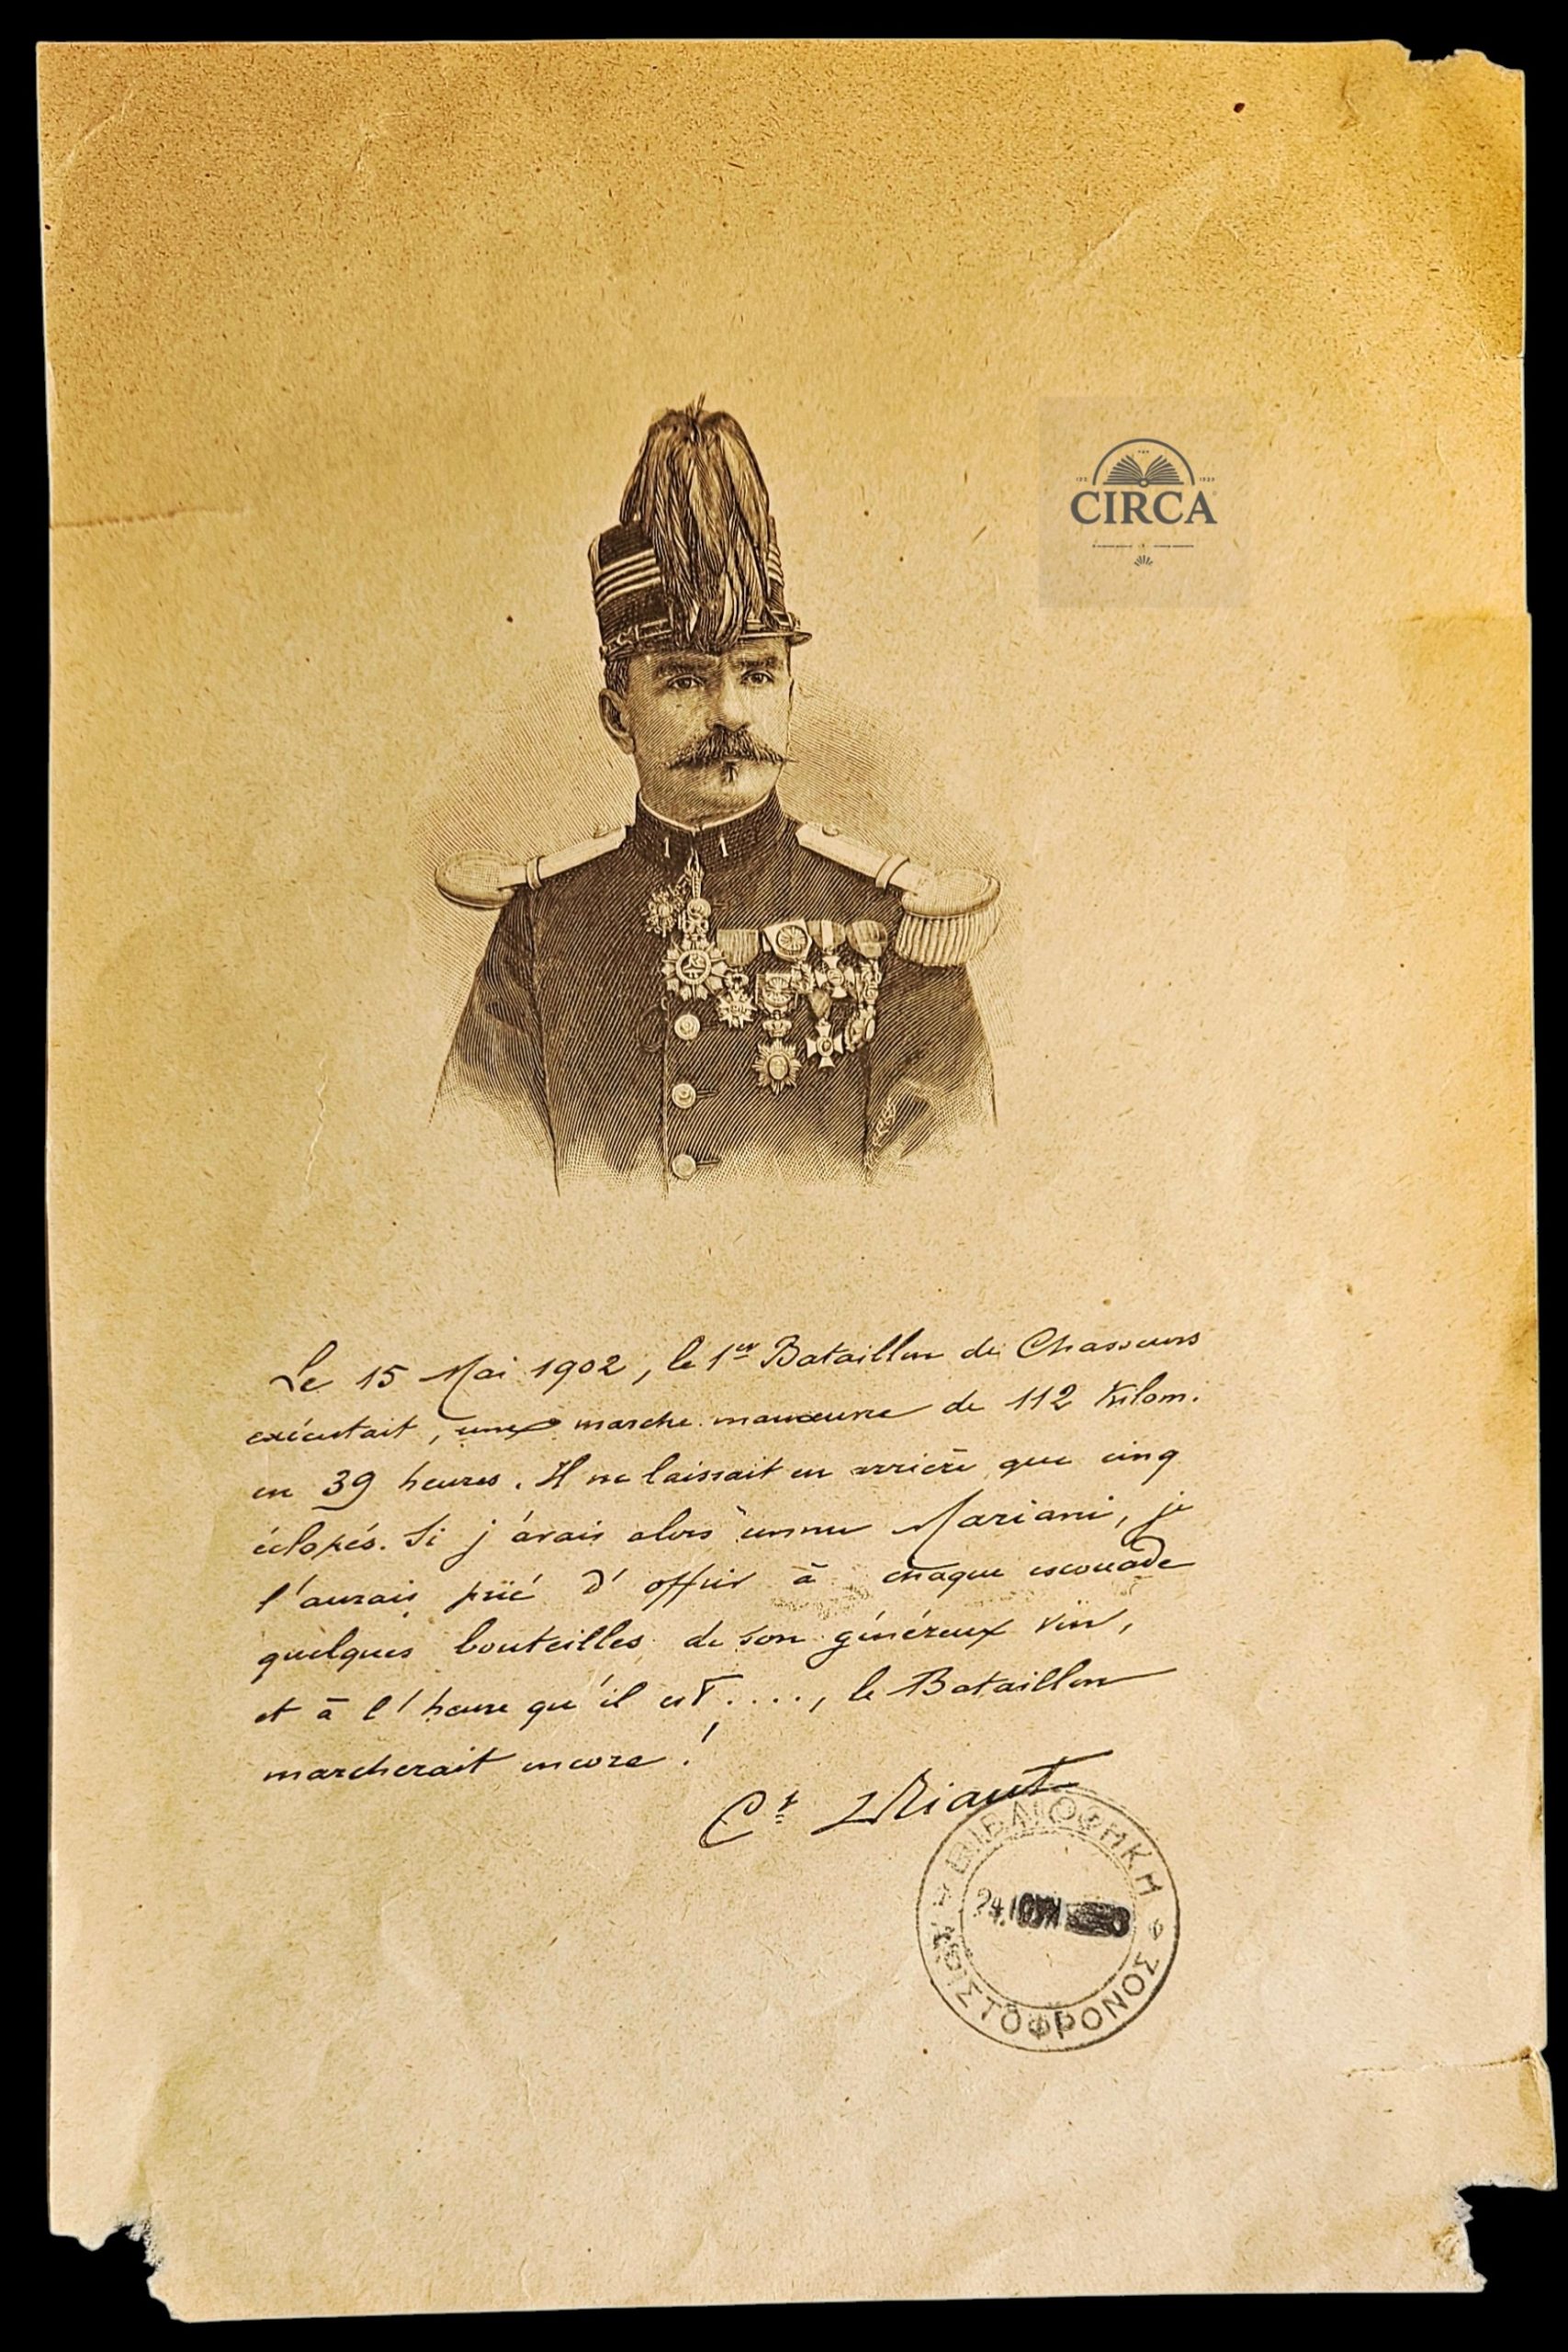 CIRCA
1 1
Le 15 Mai 1902, le 1er Bataillon de Chasseurs
exécutait, une marche manœuvre de 112 Kilom.
en 39 heures. Il ne laissait en arrière que cinq
éclopés. Si j'avais alors connu Mariani, je
l'aurais prié d'offrir à chaque escouade
quelques bouteilles de son généreux vin,
et à l'heure qu'il est...., le Bataillon
marcherait encore!
Ct
ΒΙΒΛΙΟΘΗΚΗ
24.
ΑΡΙΣΤΟΦΡΟΝΟΣ